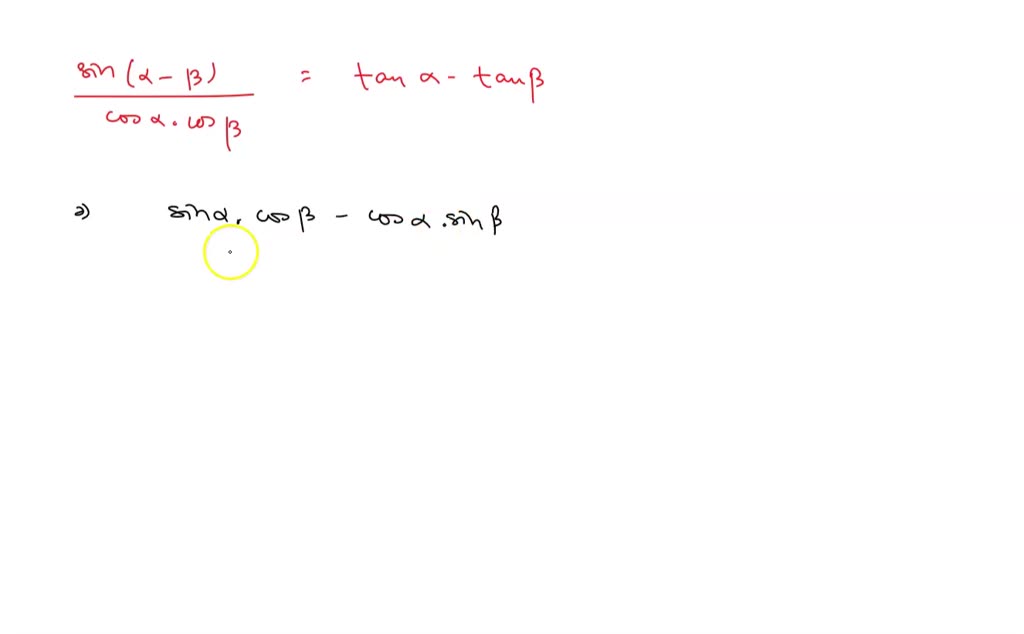 sin (α - β) / cos α . cos β = tan α - tan β
⇒ sin α . cos β - cos α . sin β